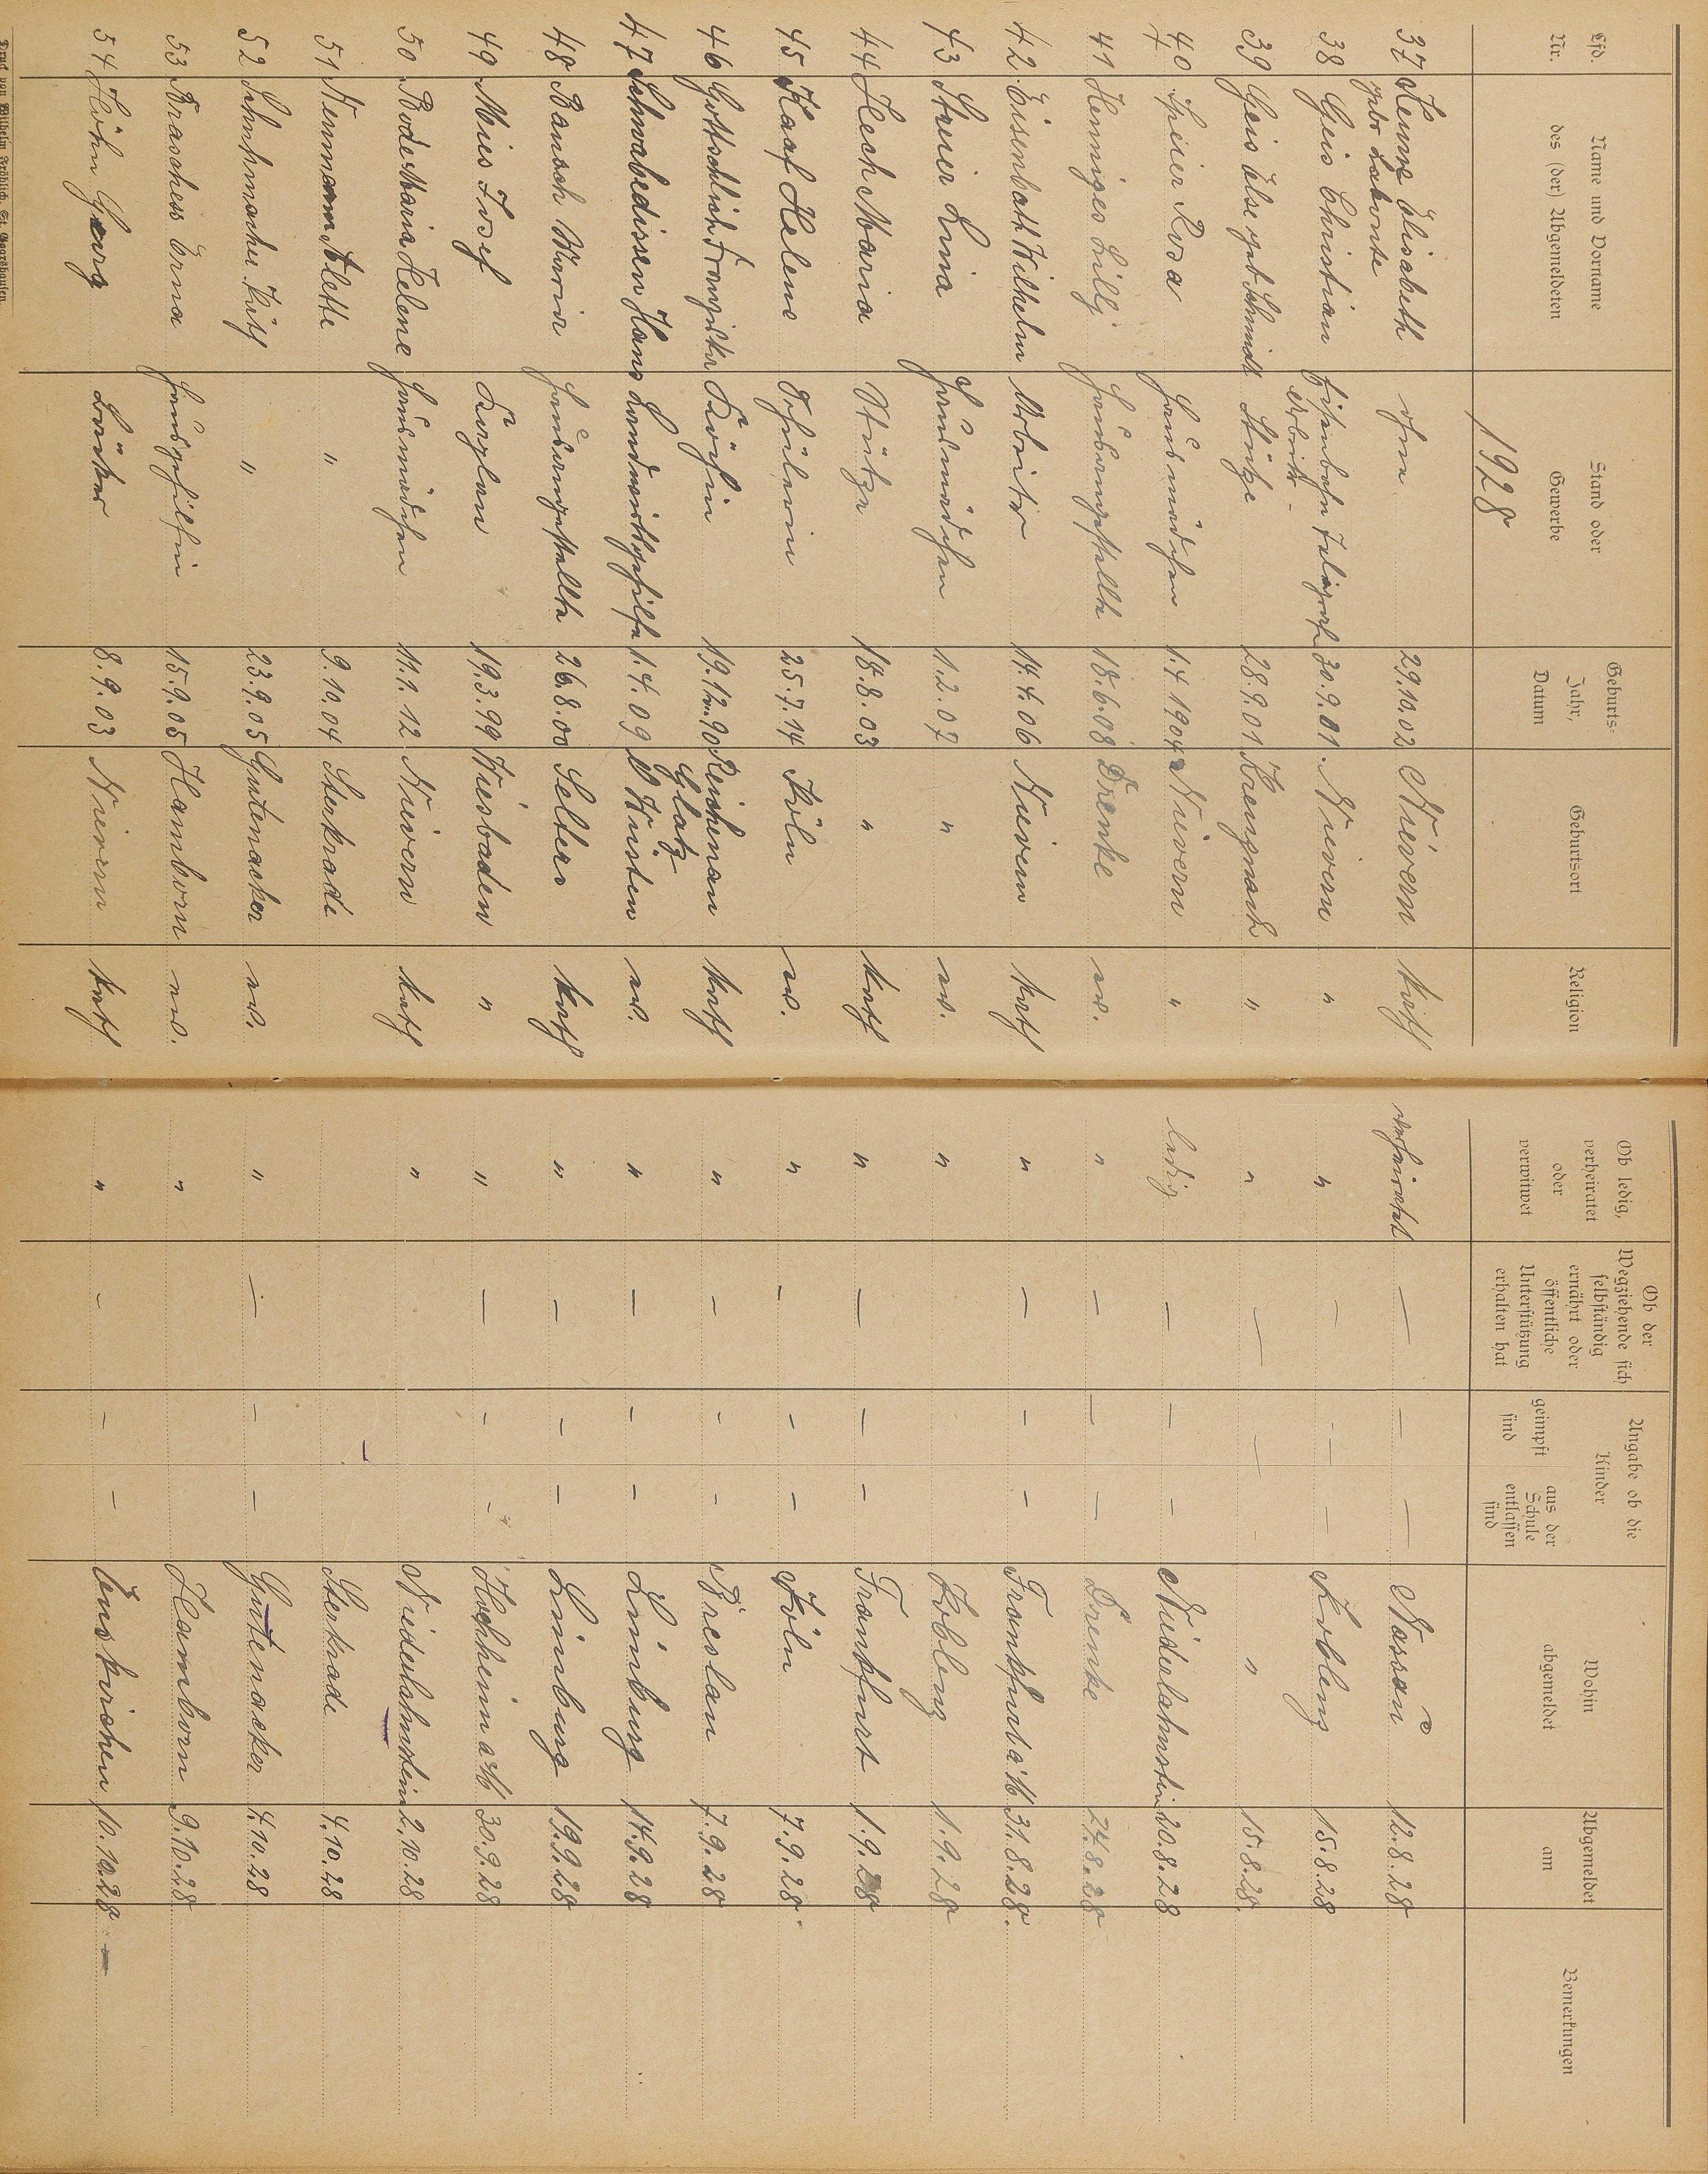 Lfd. Nr. Name und Vorname des (der) Abgemeldeten Stand oder Gewerbe Geburts= Jahr, Datum Geburtsort Religion Ob ledig, verheiratet oder verwitwet Ob der Wegziehende sich selbständig ernährt oder öffentliche Unterstützung erhalten hat Angabe ob die Kinder geimpft sind aus der Schule entlassen sind Wohin abgemeldet Abgemeldet am Bemerkungen
1928
37 Henne Elisabeth ohne 29.10.02 Nievern kath verheiratet — — — Nassau 12.8.28
gebr Labonte
38 Geis Christian Eisenbahn Telegraf 30.9.01. Nievern " " — — — Koblenz 15.8.28
arbeiter
39 Geis Else geb Schmidt Stütze 28.9.01 Kreuznach " " — — — " 15.8.28.
40 Speier Rosa Hausmädchen 1.4.1904 Nievern " ledig — — — Niederlahnstein 20.8.28
41 Hemniges Lilly Hausangestellte 18.6.08 Drenke ev. " — — — Drenke 24.8.28
42 Eisenbath Wilhelm Arbeiter 14.4.06 Nievern kath " — — — Frankfurt a/M 31.8.28.
43 Steier Lina Hausmädchen 1.2.07 " ev. " Koblenz 1.9.28
44 Hech Maria Stütze 18.8.03 " kath " — — — Frankfurt 1.9.28
45 Kaaf Helene Schülerin 25.7.14 Köln ev. " — — — Köln 7.9.28.
46 Gottschlich Franziska Köchin 19.12.90 Reichenau kath " — — — Breslau 7.9.28
Glatz
47 Schwabedissen Hans Landwirtsgehilfe 1.4.09 Wüsten ev. " — — — Limburg 14.9.28
48 Bausch Maria Hausangestellte 26.8.00 Selters kath " — — — Limburg 19.9.28
49 Mies Josef Kaplan 19.3.99 Wiesbaden " " — — — Hochheim a/M 30.9.28
50 Bode Maria Helene Hausmädchen 11.1.12 Nievern kath " Niederlahnstein 2.10.28
51 Nemmann Alette " 9.10.04 Sterkrade Sterkrade 4.10.28
52 Schuhmacher Käth " 23.9.05 Gutenacker ev. " — — — Gutenacker 4.10.28
53 Braschess Erna Hausgehilfin 15.9.05 Hamborn ev. " Hamborn 9.10.28
54 Höhn Georg Bäcker 8.9.03 Nievern kath " — — — Euskirchen 10.10.28 —
Druck von Wilhelm Fröhlich, St. Goarshausen.